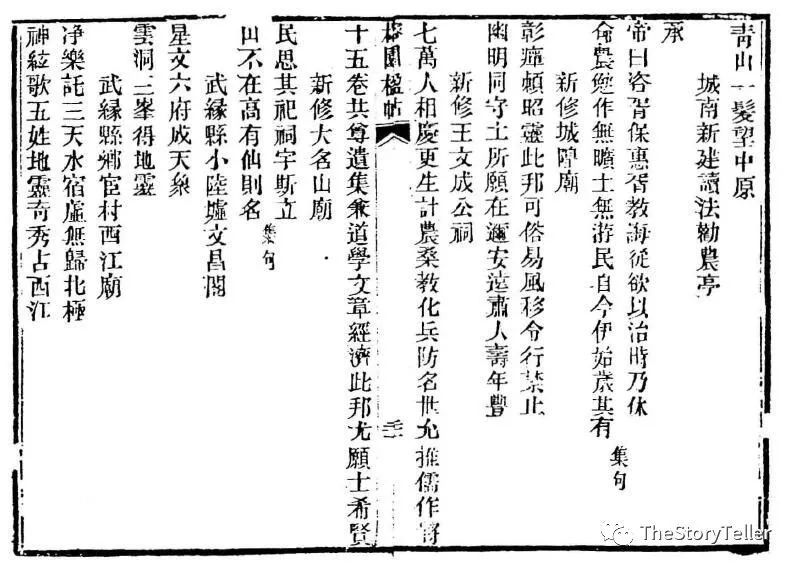 青山一髮望中原
城南新建讀法勸農亭
承
帝曰咨胥保惠胥教誨從欲以治時乃休
命農勉作無曠土無游民自今伊始歲其有 集句
新修城隍廟
彰癉頼昭靈此邦可俗易風移令行禁止
幽明同守土所願在邇安遠肅人壽年豐
新修王文成公祠
七萬人相慶更生計農桑教化兵防名世允推儒作將
榕園楹帖
十五卷共尊遺集兼道學文章經濟此邦尤願士希賢
新修大名山廟
民思其祀祠宇斯立
山不在高有仙則名 集句
武緣縣小陸墟文昌閣
星文六府成天象
雲洞三峯得地靈
武緣縣鄉宦村西江廟
净樂託三天水宿廬無歸北極
神絃歌五姓地靈奇秀占西江
TheStoryTeller